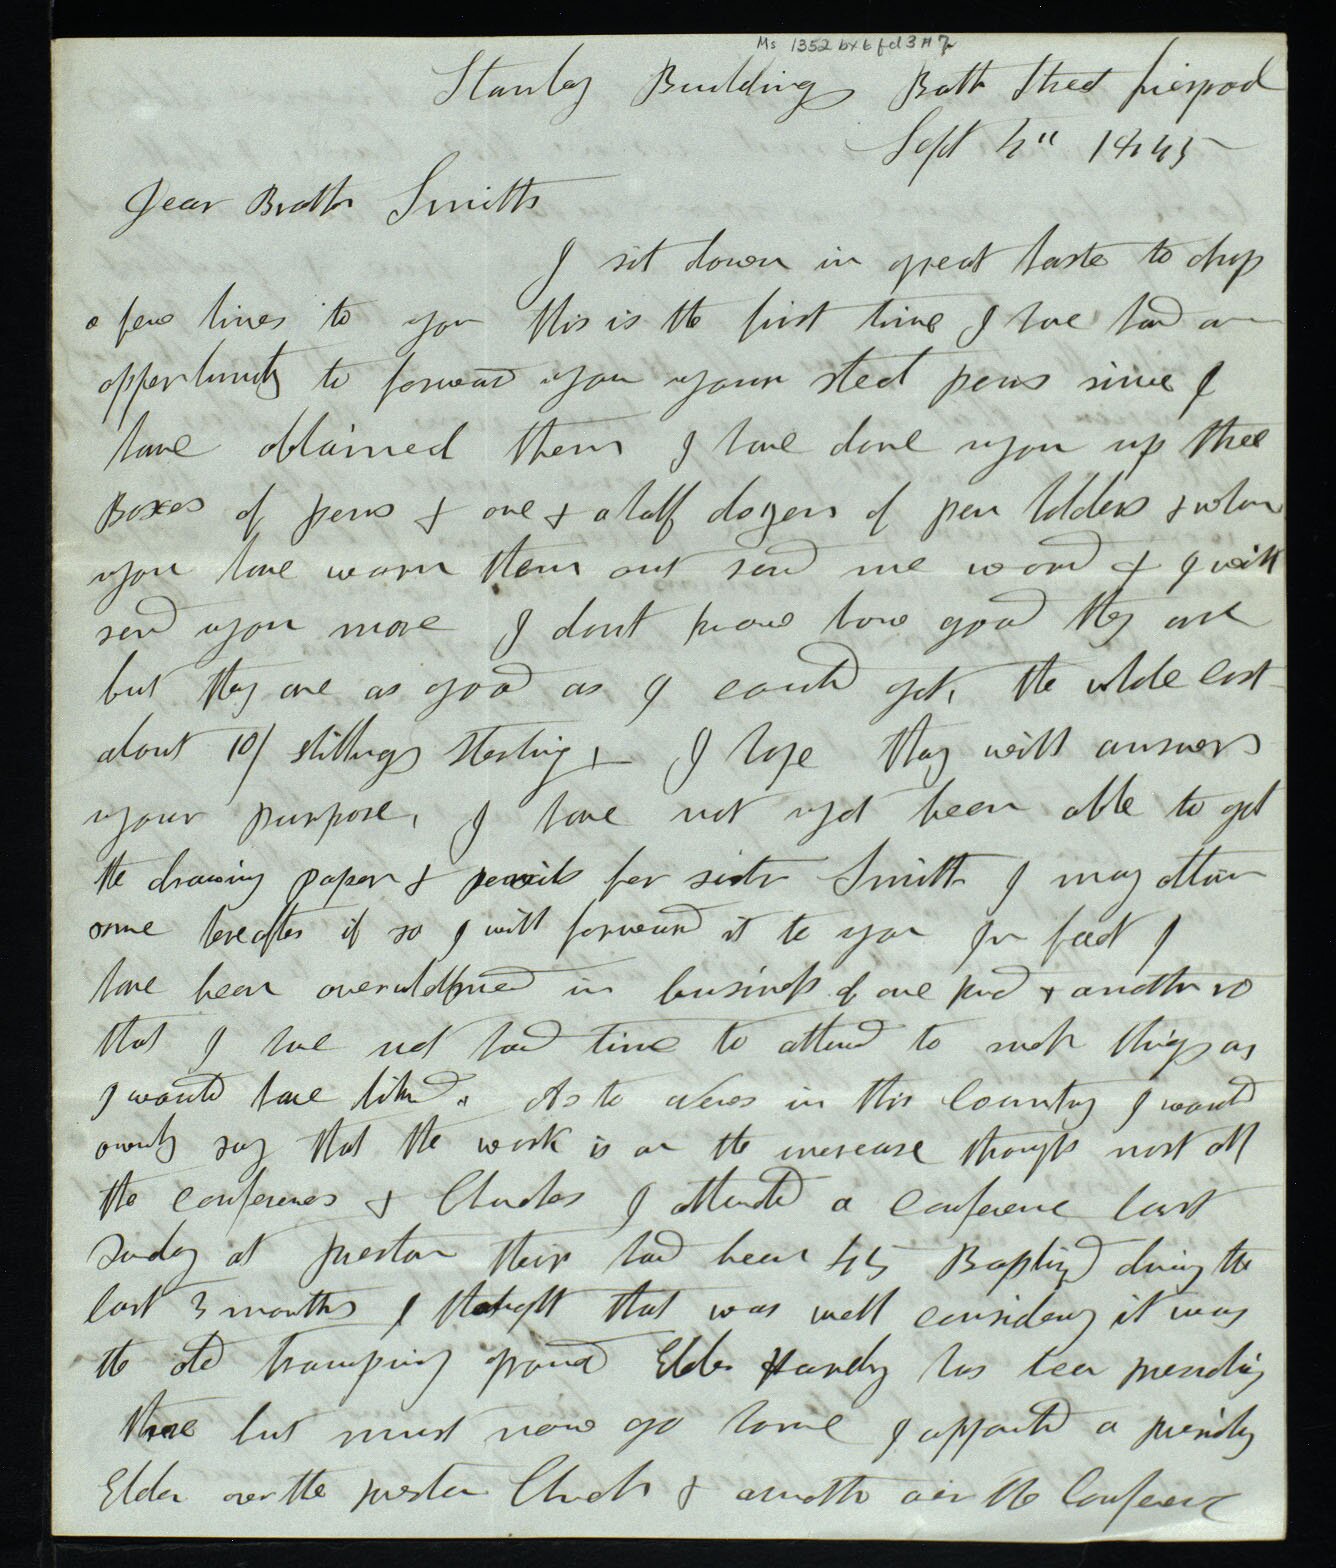 Ms 1352 bx 6 fd 3 # 7
Stanley Buildings Bath Street Liverpool
Sept 4" 1845
Dear Brother Smith
I sit down in great haste to drop
a few lines to you this is the first time I have had an
oppertunity to forward you your steel pens since I
have obtained them I have done you up three
Boxes of pens & one & a half dozen of pen holders & when
you have worn them out send me word & I will
send you more I dont know how good they are
but they are as good as I could get, the whole cost
about 10/ shillings sterling, I hope they will answer
your purpose, I have not yet been able to get
the drawing paper & pencils for sister Smith I may obtain
some hereafter if so I will forward it to you In fact I
have been overwhelmed in business of one kind & another so
that I have not had time to attend to such things as
I would have liked. As to News in this Country I would
ownly say that the work is on the increase through most all
the conferences & Churches I attended a conference last
Sunday at preston their had been 45 Baptized during the
last 3 months I thought that was well considering it was
the old tramping ground Elder Hardy has been presiding
there but must now go home I appointed a presiding
Elder over the preston Church & another over the Conference